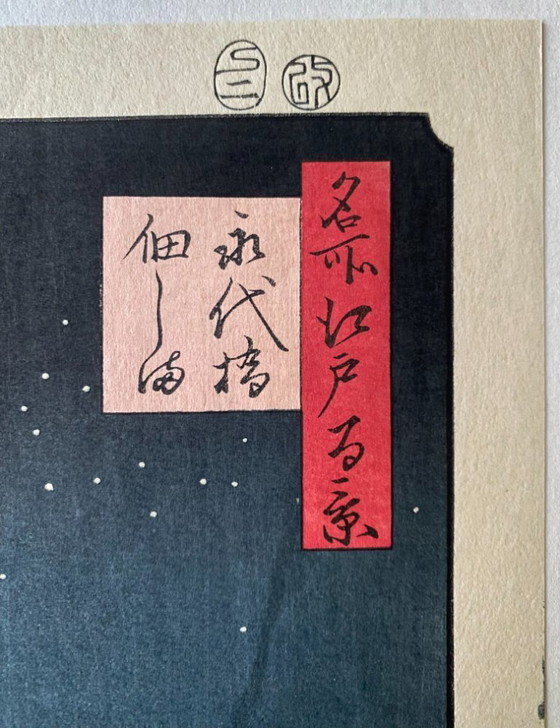 改
名所江戸百景
永代橋
佃しま